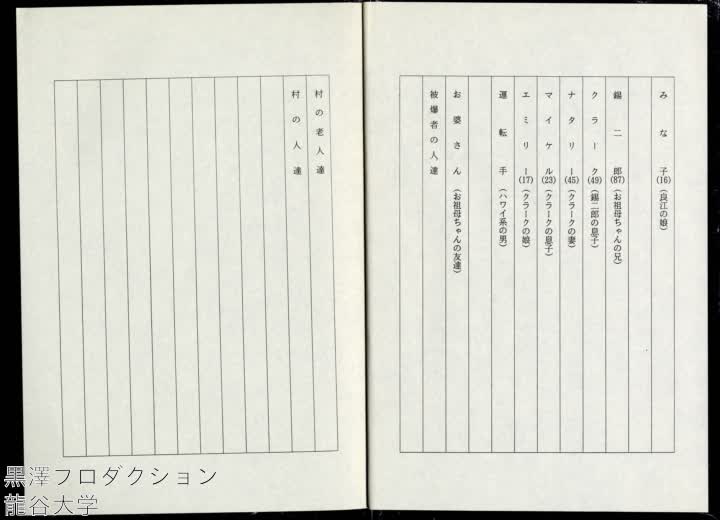 みな子(16)(良江の娘)
錫二郎(87)(お祖母ちゃんの兄)
クラーク(49)(錫二郎の息子)
ナタリー(45)(クラークの妻)
マイケル(23)(クラークの息子)
エミリー(17)(クラークの娘)
運転手(ハワイ系の男)
お婆さん(お祖母ちゃんの友達)
被爆者の人達
村の老人達
村の人達
黒澤フロダクション
龍谷大学